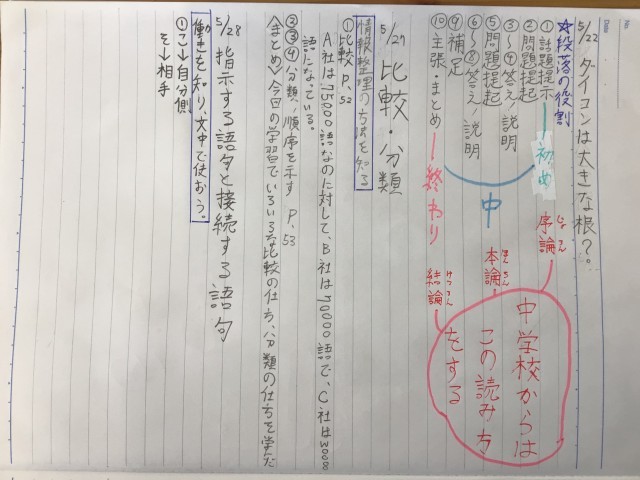 5/22 ダイコンは大きな根?
☆段落の役割
①話題提示 ― 初め
②問題提起
③〜④答え/説明
⑤問題提起
⑥〜⑧答え/説明
⑨補足
⑩主張・まとめ ― 終わり
中
序論
じょろん
本論
ほんろん
結論
けつろん
中学校からは
この読み方
をする
5/27 比較・分類
情報整理の方法を知る
①比較 P、52
A社は75000語なのに対して、B社は70000語で、C社は
語になっている。
②③④分類、順序を示す P、53
まとめ＞今日の学習でいろいろな比較の仕方、分類の仕方を学んだ
5/28 指示する語句と接続する語句
働きを知り、文中で使おう。
①こ→自分側
そ→相手